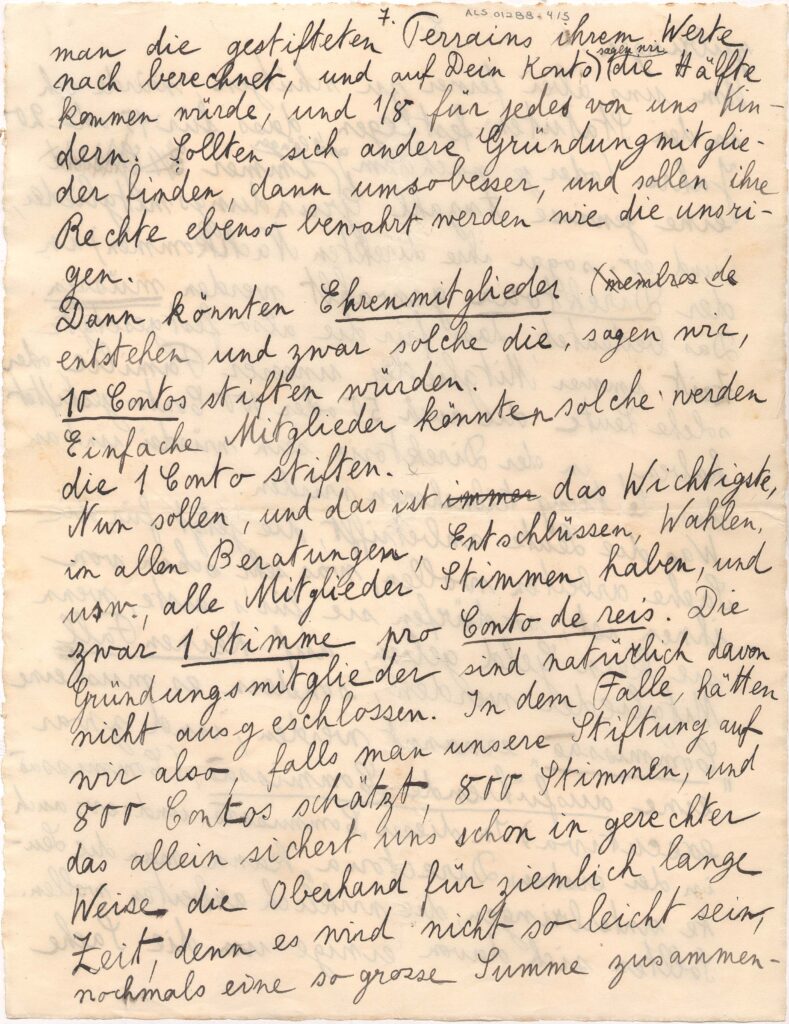 7.
ALS 01288-4/5
man die gestifteten Terrains ihrem Werte
nach berechnet, und auf Dein Konto, (sagen wir) die Hälfte
kommen würde, und 1/8 für jedes von uns Kin-
dern. Sollten sich andere Gründungmitglie-
der finden, dann umsobesser, und sollen ihre
Rechte ebenso bewahrt werden wie die unsri-
gen.
Dann könnten Ehrenmitglieder (membros de
entstehen und zwar solche die, sagen wir,
10 Contos stiften würden.
Einfache Mitglieder könnten solche werden
die 1 Conto stiften.
Nun sollen, und das ist immer das Wichtigste,
in allen Beratungen, Entschlüssen, Wahlen,
usw., alle Mitglieder Stimmen haben, und
zwar 1 Stimme pro Conto de reis. Die
Gründungsmitglieder sind natürlich davon
nicht ausgeschlossen. In dem Falle, hätten
wir also, falls man unsere Stiftung auf
800 Contos schätzt, 800 Stimmen, und
das allein sichert uns schon in gerechter
Weise die Oberhand für ziemlich lange
Zeit, denn es wird nicht so leicht sein,
nochmals eine so grosse Summe zusammen-